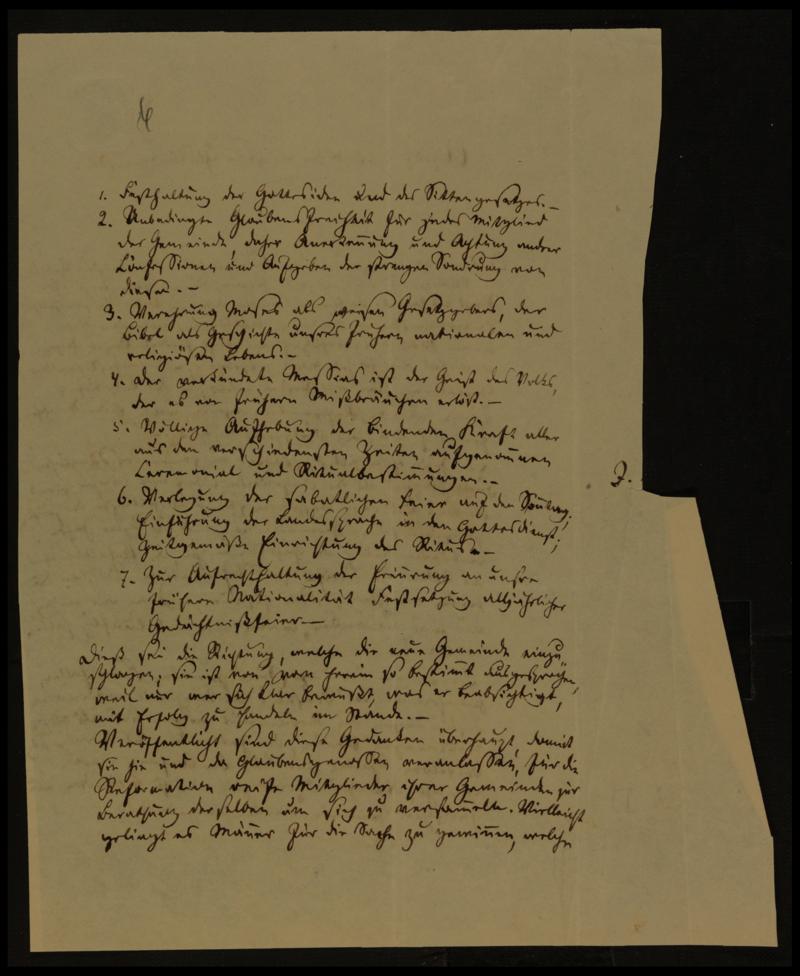 1. Festhaltung der Gottesidee und des Sittengesetzes. —
2. Unbedingte Glaubensfreiheit für jedes Mitglied
der Gemeinde, daher Anerkennung und Achtung andrer
Confessionen und Aufgeben der strengen Sonderung von
diesen. —
3. Verehrung Moses als weisen Gesetzgebers, der
Bibel als Geschichte unsres frühern nationalen und
religiösen Lebens. —
4. Der verkündete Messias ist der Geist des Volks,
der es von frühern Mißbräuchen erlöst. —
5. Völlige Aufhebung der bindenden Kraft aller
aus den verschiedensten Zeiten aufgenommenen
Ceremonial und Ritualbestimmungen. —
2.
6. Verlegung der sabatlichen Feier auf den Sonntag;
Einführung der Landessprache in den Gottesdienst;
zeitgemäße Einrichtung des Ritus. —
7. Zur Aufrechthaltung der Erinnerung an unsre
frühere Nationalität Festsetzung alljährlicher
Gedächtnißfeier —
Dieß sei die Richtung, welche die neue Gemeinde einzu-
schlagen; sie ist von vorn herein so bestimmt ausgesprochen,
weil nur wer sich klar bewußt, was er beabsichtigt,
mit Erfolg zu handeln im Stande. —
Veröffentlicht sind diese Gedanken überhaupt, damit
sie hie und da Glaubensgenossen veranlassen, für die
Reformation reife Mitglieder ihrer Gemeinden zur
Berathung derselben um sich zu versammeln. Vielleicht
gelingt es Männer für die Sache zu gewinnen, welche